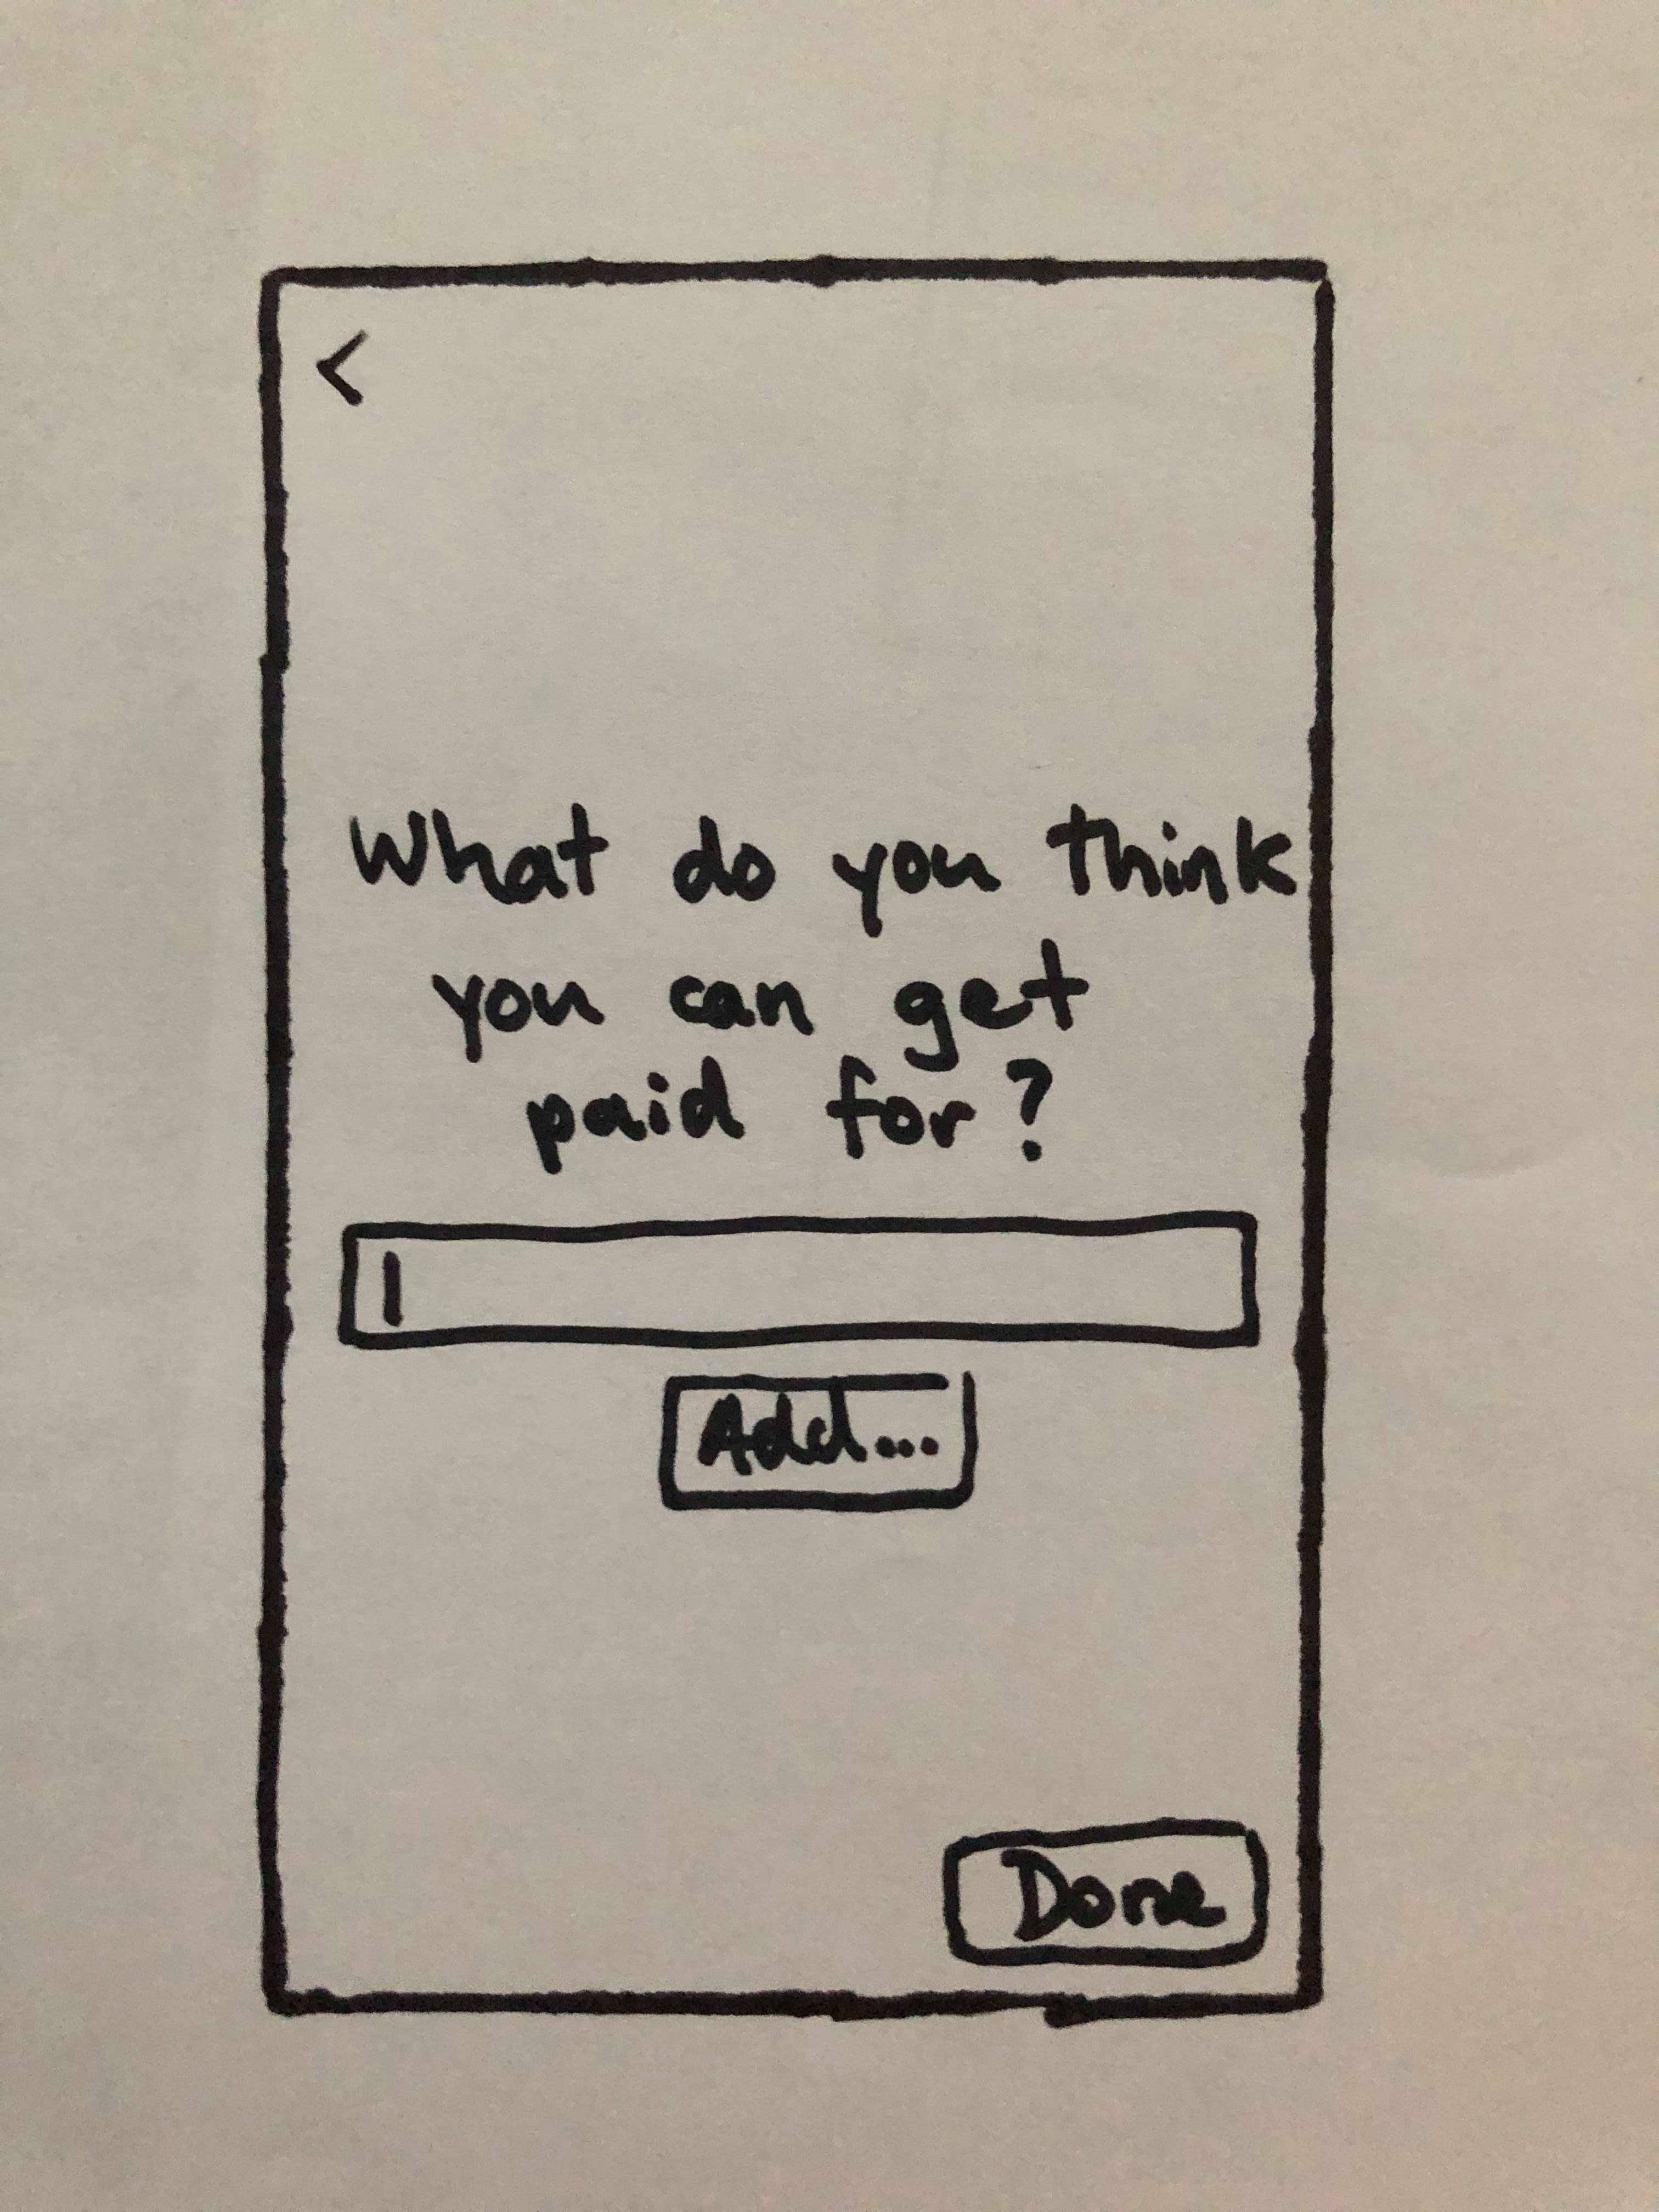 <
What do you think
you can get
paid for?
Add...
Done